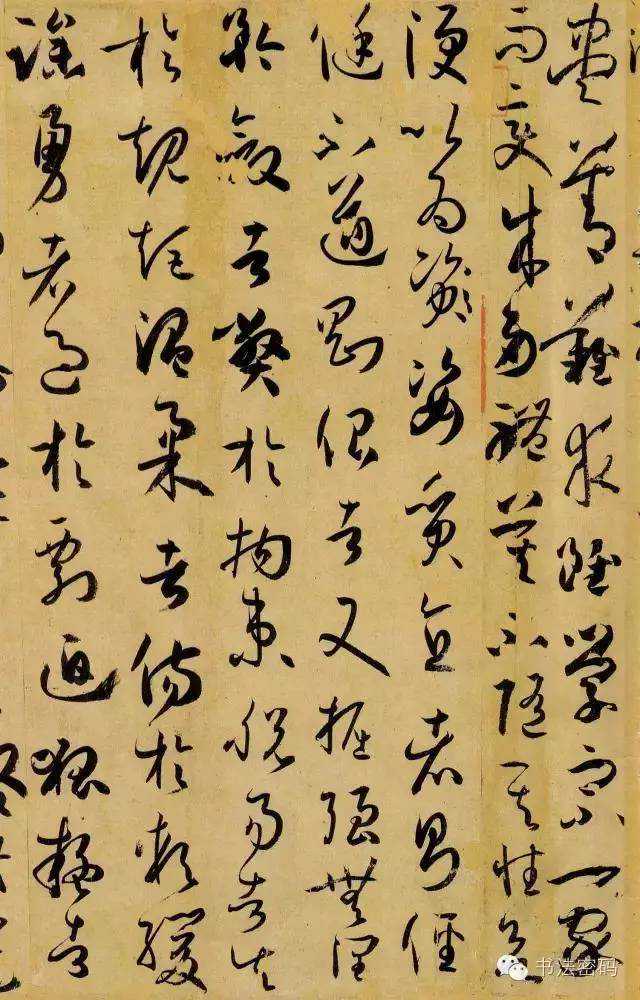 盡善難求雖學宗一家
而變成多體莫不隨其性欲
便以為姿質直者則徑
侹不遒剛佷者又掘強無潤
矜斂者弊於拘束脫易者失
於規矩溫柔者傷於軟緩
躁勇者過於剽迫狐疑者
书法密码